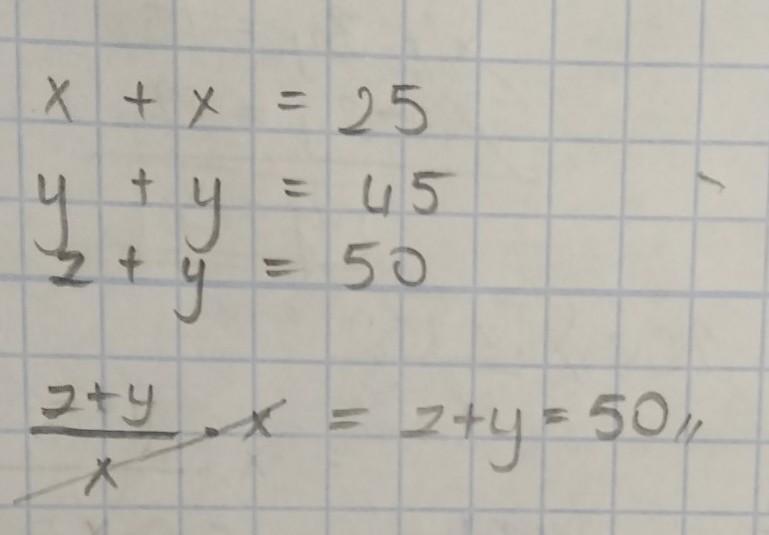 x + x = 25
y + y = 45
z + y = 50
z+y/x · x = z+y = 50,,